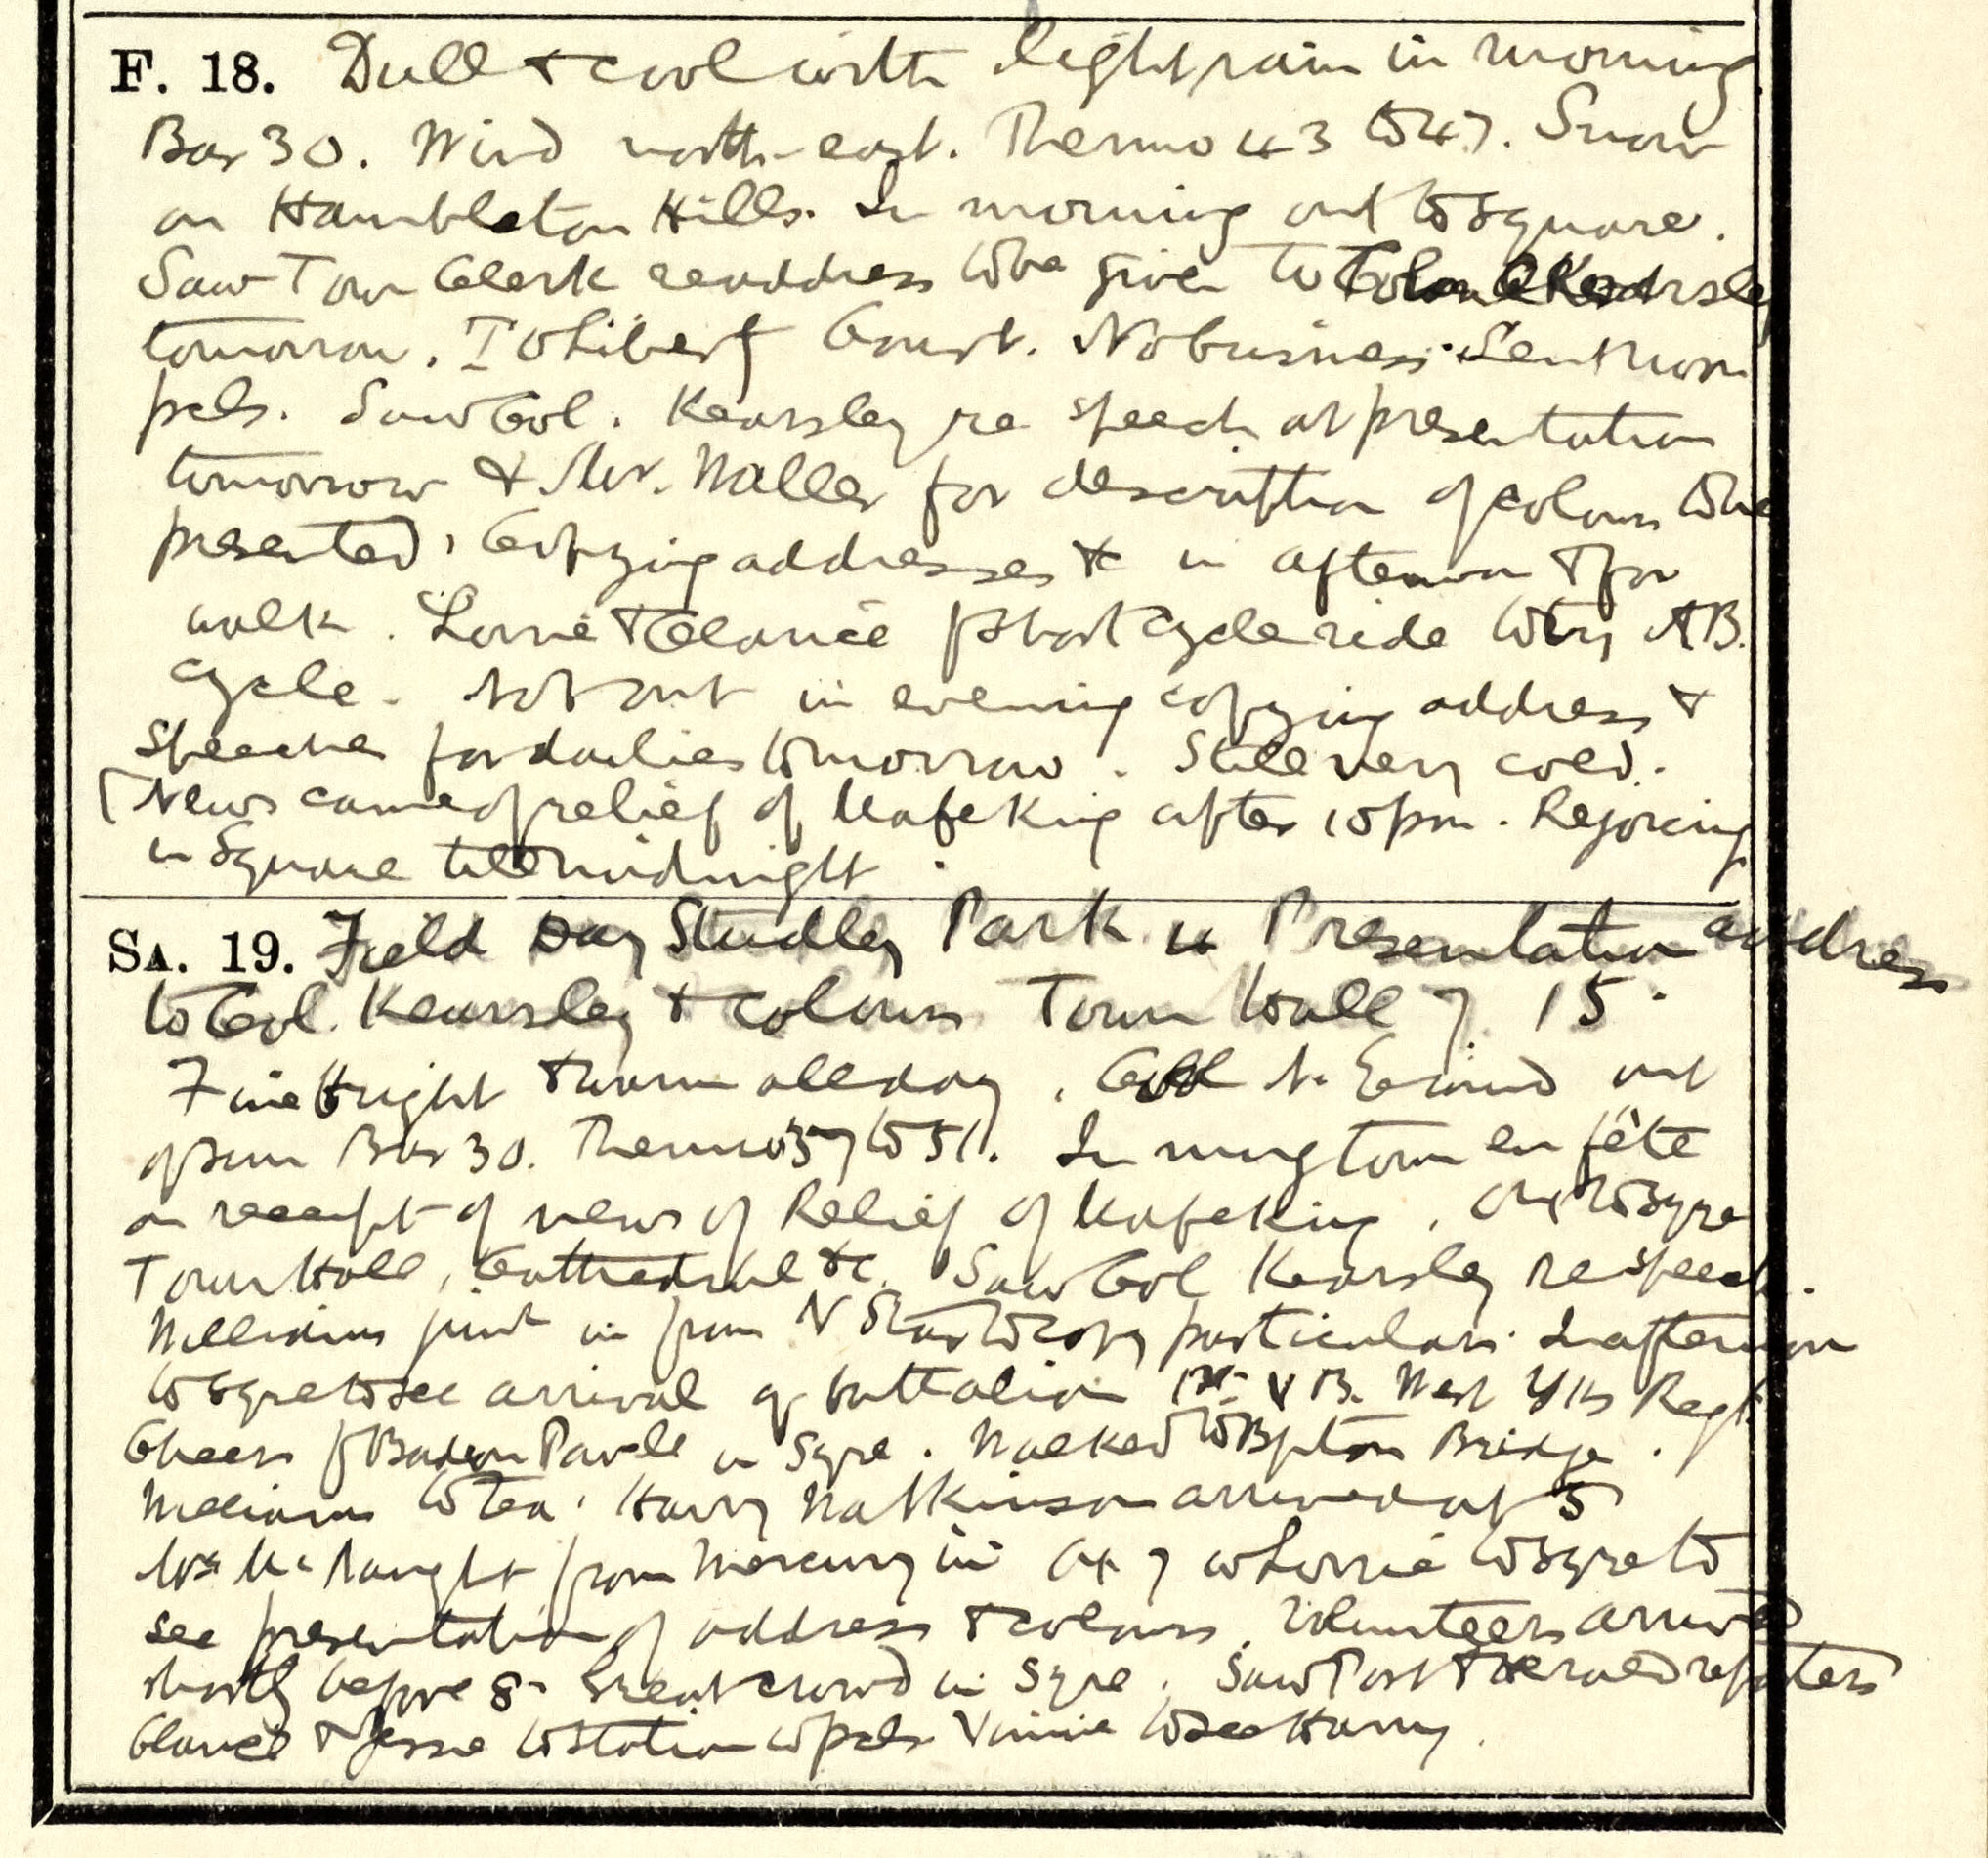 F. 18. Dull & cool with light rain in morning
Bar 30. Wind north-east. Thermo 43 to 47. Snow
on Hambleton Hills. In morning out to square.
Saw Town Clerk re address to be given to Colonel Kearsley
tomorrow. To Liberty Court. No business. Sent
pcls. Saw Col. Kearsley re speech at presentation
tomorrow & Mr. Waller for description of colours to be
presented. Copying addresses &c in afternoon & for
walk. Lorrie & Clarice f short cycle ride to try AB.
cycle. Not out in evening copying address &
speeches for dailies tomorrow. Still very cold.
[News came of relief of Mafeking after 10 pm. Rejoicing
in Square till midnight.
Sa. 19. Field Day Studley Park 4 Presentation address
to Col. Kearsley & colours Town Hall 7.15.
Fine bright & warm all day. Cold N. E wind out
of sun Bar 30. Thermo 37 to 51. In mng town en fête
on receipt of news of Relief of Mafeking. Out to Sqre
Town Hall, Cathedral &c. Saw Col Kearsley re speech.
Williams in from N Star to copy particulars. In afternoon
to Sqre to see arrival of battalion 1st V B. West Yks Regt
Cheers f Baden Powell in Sqre. Walked to Bpton Bridge.
Williams to tea. Harry Watkinson arrived at 5
McNaught from Mercury in. At 7 w Lorrie to Sqre to
see presentation of address & colours. Volunteers arrived
shortly before 8. Great crowd in Sqre. Saw Post & Herald reporters
Clarice & Jessie to Station w pcls. Vinnie to see Harry.